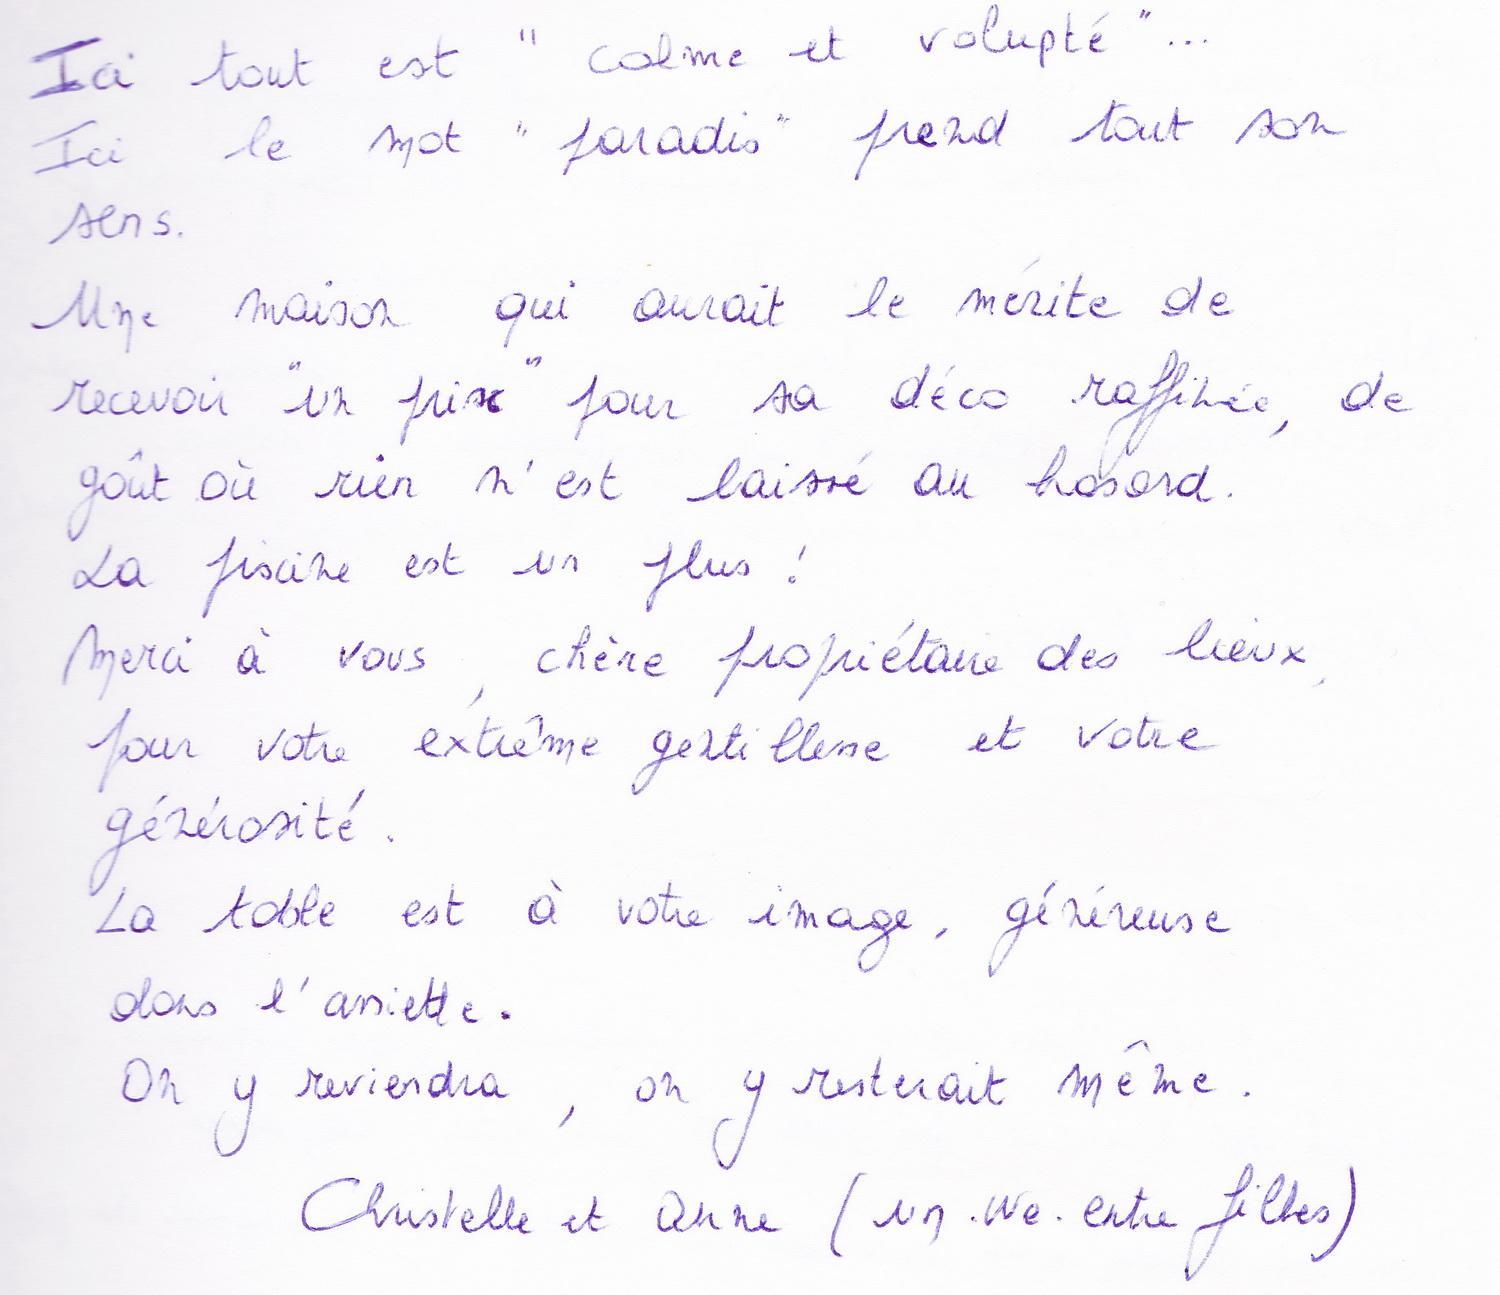 Ici tout est " calme et volupté "...
Ici le mot " paradis " prend tout son
sens.
Une maison qui aurait le mérite de
recevoir "un prix" pour sa déco raffinée, de
goût où rien n'est laissé au hasard.
La piscine est un plus !
Merci à vous, chère propriétaire des lieux,
pour votre extrême gentillesse et votre
générosité.
La table est à votre image, généreuse
dans l'assiette.
On y reviendra, on y resterait même.
Christelle et Anne (un. We. entre filles)